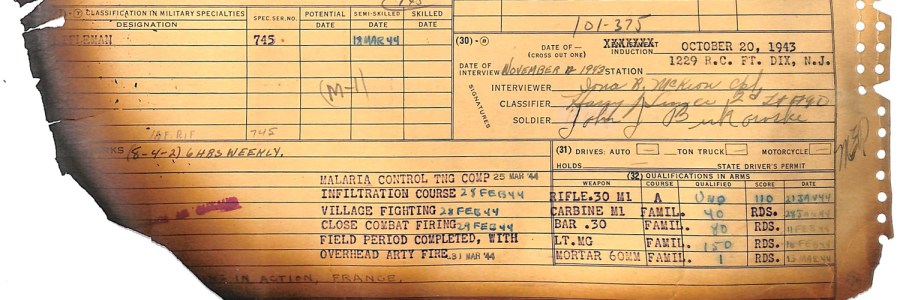 CLASSIFICATION IN MILITARY SPECIALTIES
DESIGNATION
SPEC.SER.NO.
POTENTIAL
DATE
SEMI-SKILLED
DATE
SKILLED
DATE
745
18 MAR 44
(M-1)
745
101-375
(30)
DATE OF—
(CROSS OUT ONE)
XXXXXXX
INDUCTION
OCTOBER 20, 1943
DATE OF INTERVIEW NOVEMBER 1943 STATION 1229 R.C. FT. DIX, N.J.
SIGNATURES
INTERVIEWER
CLASSIFIER
SOLDIER John J
(8-4-2) 6 HRS WEEKLY.
(31) DRIVES: AUTO TON TRUCK MOTORCYCLE
HOLDS STATE DRIVER'S PERMIT
MALARIA CONTROL TNG COMP 25 MAR '44
INFILTRATION COURSE 25 FEB 44
VILLAGE FIGHTING 28 FEB 44
CLOSE COMBAT FIRING 29 FEB 44
FIELD PERIOD COMPLETED, WITH
OVERHEAD ARTY FIRE 31 MAR '44
(32) QUALIFICATIONS IN ARMS
WEAPON COURSE QUALIFIED SCORE DATE
RIFLE.30 M1 A 110
CARBINE M1 FAMIL. 40 RDS.
BAR .30 FAMIL. 80 RDS.
LT.MG FAMIL. 150 RDS.
MORTAR 60MM FAMIL. 1 RDS.
IN ACTION, FRANCE.